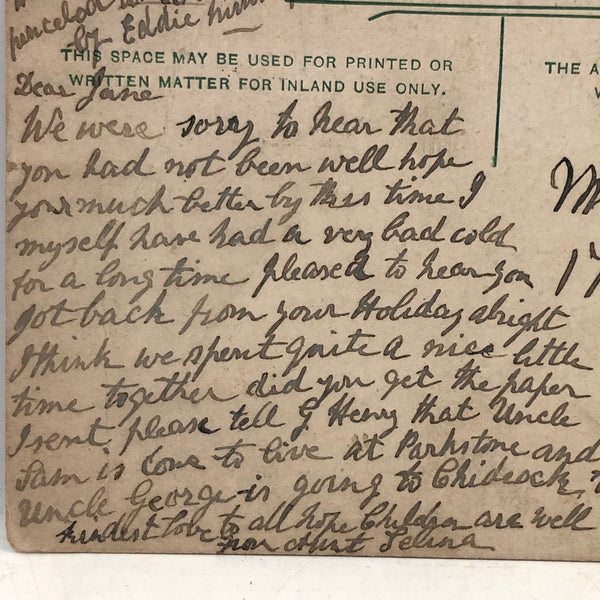 by Eddie
THIS SPACE MAY BE USED FOR PRINTED OR
WRITTEN MATTER FOR INLAND USE ONLY.
THE A
Dear Jane
We were sorry to hear that
you had not been well hope
your much better by this time I
myself have had a very bad cold
for a long time pleased to hear you
got back from your Holiday alright
I think we spent quite a nice little
time together did you get the paper
I sent please tell G Henry that Uncle
Sam is Come to live at Parkstone and
Uncle George is going to Chideock
kindest love to all hope Children are well
from Aunt Selina
M
17